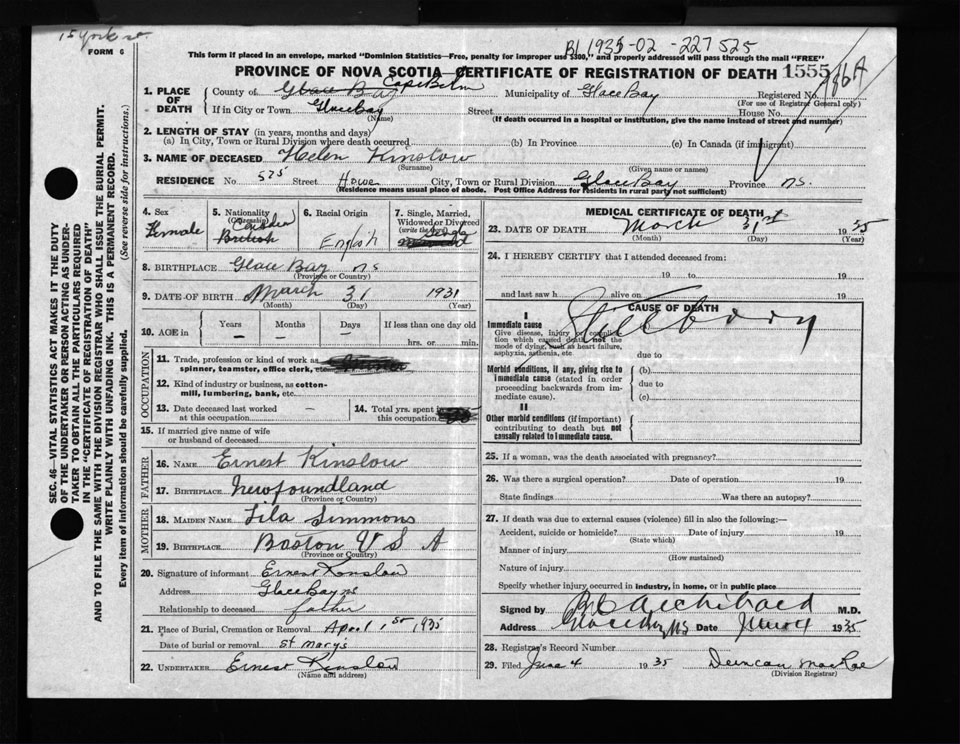 15 York St.
FORM 6
B1 1935-02-227525
This form if placed in an envelope, marked "Dominion Statistics—Free, penalty for improper use $300," and properly addressed will pass through the mail "FREE"
PROVINCE OF NOVA SCOTIA—CERTIFICATE OF REGISTRATION OF DEATH 1555
1. PLACE OF DEATH
County of Glace Bay Cape Breton Municipality of Glace Bay Registered No.
(For use of Registrar General only)
If in City or Town Glace Bay Street House No.
(Name) (If death occurred in a hospital or institution, give the name instead of street and number)
2. LENGTH OF STAY (in years, months and days)
(a) In City, Town or Rural Division where death occurred (b) In Province (c) In Canada (if immigrant)
3. NAME OF DECEASED Helen Kinslow
(Surname) (Given name or names)
RESIDENCE No. 525 Street Howe City, Town or Rural Division Glace Bay Province N.S.
(Residence means usual place of abode. Post Office Address for residents in rural parts not sufficient)
4. Sex
Female
5. Nationality
(Citizenship)
Canadian
British
6. Racial Origin
English
7. Single, Married, Widowed or Divorced
(write the word)
Single
8. BIRTHPLACE Glace Bay NS
(Province or Country)
9. DATE OF BIRTH March 31 1931
(Month) (Day) (Year)
10. AGE in
Years Months Days If less than one day old
— — — hrs. or min.
OCCUPATION
11. Trade, profession or kind of work as spinner, teamster, office clerk, etc.
12. Kind of industry or business, as cotton-mill, lumbering, bank, etc.
13. Date deceased last worked at this occupation —
14. Total yrs. spent in this occupation
15. If married give name of wife or husband of deceased
FATHER
16. NAME Ernest Kinslow
17. BIRTHPLACE Newfoundland
(Province or Country)
MOTHER
18. MAIDEN NAME Lila Simmons
19. BIRTHPLACE Boston U S A
(Province or Country)
20. Signature of informant Ernest Kinslow
Address Glace Bay NS
Relationship to deceased father
21. Place of Burial, Cremation or Removal April 1st 1935
Date of burial or removal St Mary's
22. UNDERTAKER Ernest Kinslow
(Name and address)
MEDICAL CERTIFICATE OF DEATH
23. DATE OF DEATH March 31st 1935
(Month) (Day) (Year)
24. I HEREBY CERTIFY that I attended deceased from:
19 to 19
and last saw h alive on 19
CAUSE OF DEATH
I
Immediate cause
Give disease, injury or complication which caused death, not the mode of dying, such as heart failure, asphyxia, asthenia, etc
Stillborn
due to
Morbid conditions, if any, giving rise to immediate cause (stated in order proceeding backwards from immediate cause).
(b)
due to
(c)
II
Other morbid conditions (if important) contributing to death but not causally related to immediate cause.
25. If a woman, was the death associated with pregnancy?
26. Was there a surgical operation? Date of operation 19
State findings Was there an autopsy?
27. If death was due to external causes (violence) fill in also the following:—
Accident, suicide or homicide? Date of injury 19
(State which)
Manner of injury
(How sustained)
Nature of injury
Specify whether injury occurred in industry, in home, or in public place
Signed by Archibald M.D.
Address Glace Bay NS Date June 4 1935
28. Registrar's Record Number
29. Filed June 4 1935 Duncan MacRae
(Division Registrar)
SEC. 46—VITAL STATISTICS ACT MAKES IT THE DUTY
OF THE UNDERTAKER OR PERSON ACTING AS UNDER-
TAKER TO OBTAIN ALL THE PARTICULARS REQUIRED
IN THE "CERTIFICATE OF REGISTRATION OF DEATH"
AND TO FILE THE SAME WITH THE DIVISION REGISTRAR WHO SHALL ISSUE THE BURIAL PERMIT.
WRITE PLAINLY WITH UNFADING INK. THIS IS A PERMANENT RECORD.
Every item of information should be carefully supplied. (See reverse side for instructions.)